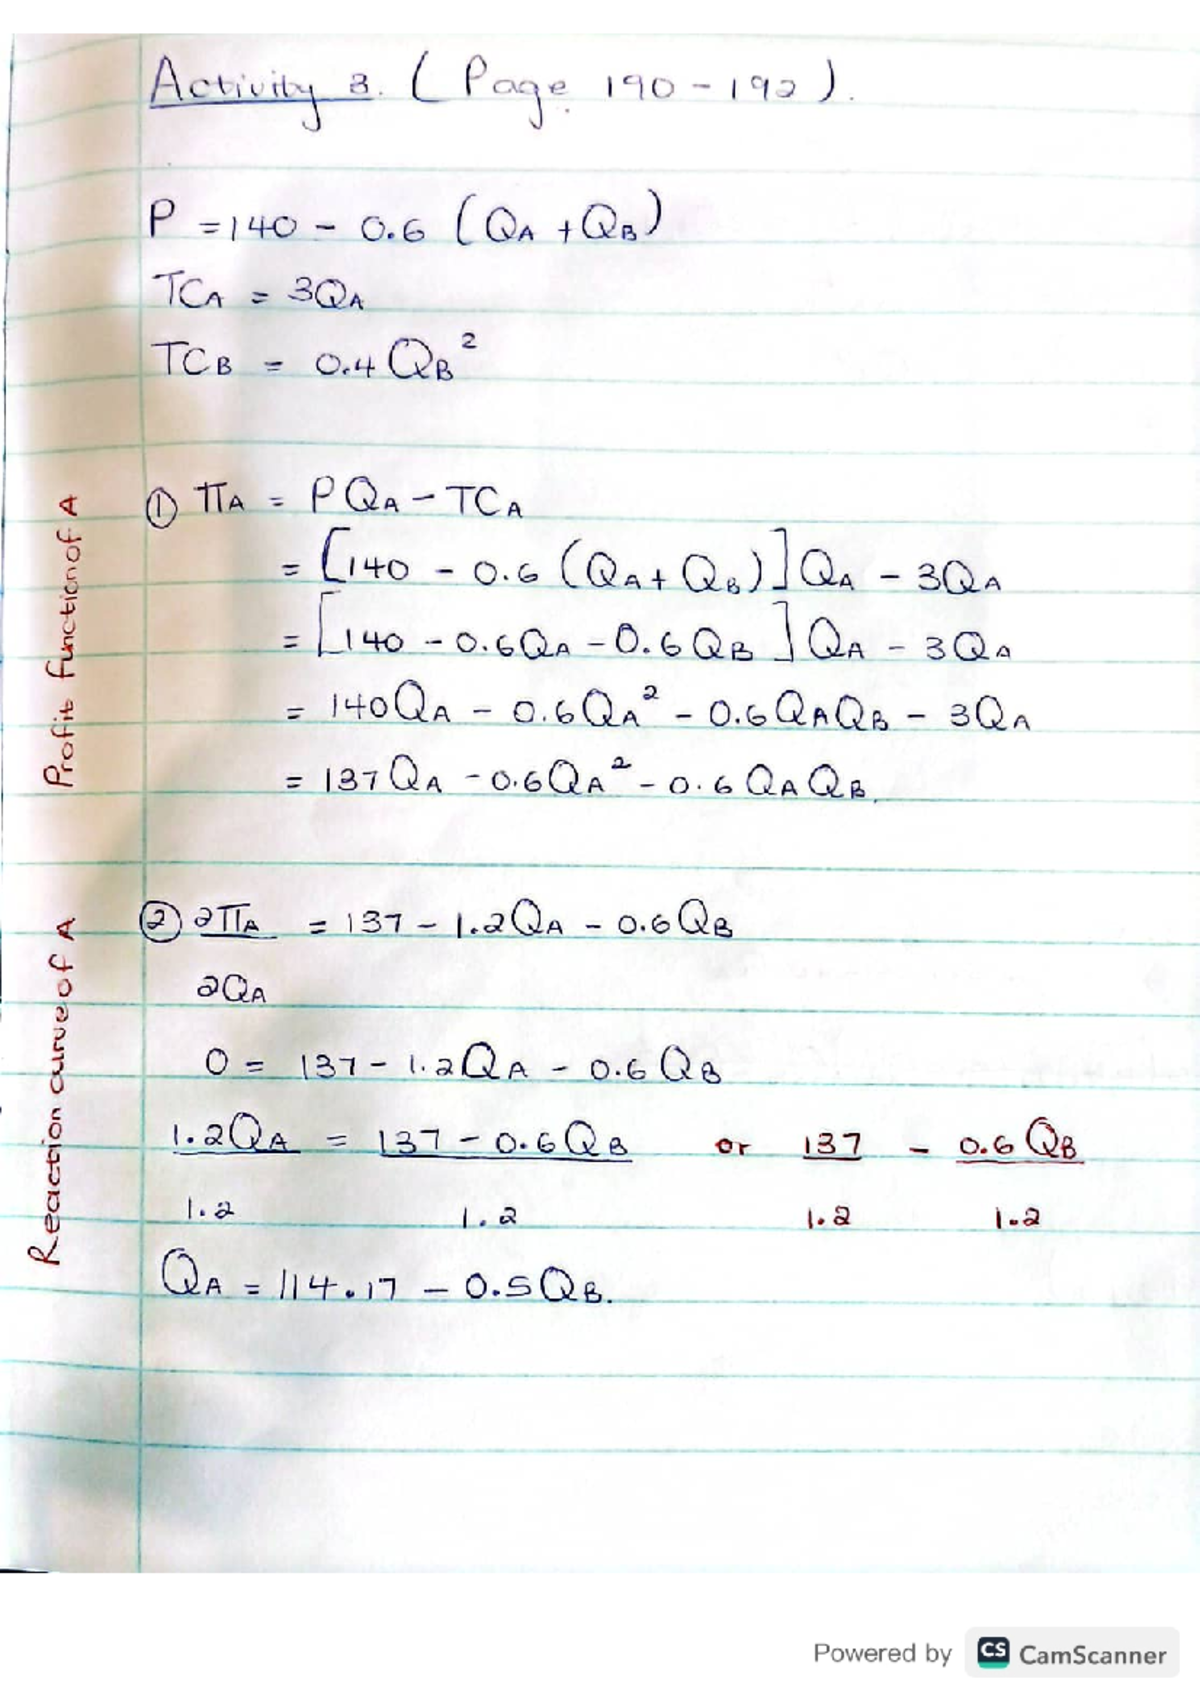 Activity 3. (Page 190-192).
P = 140 - 0.6 (QA + QB)
TCA = 3QA
TCB = 0.4 QB²
Profit function of A
① πA = PQA - TCA
= [140 - 0.6 (QA + QB)] QA - 3QA
= [140 - 0.6QA - 0.6QB] QA - 3QA
= 140QA - 0.6QA² - 0.6QAQB - 3QA
= 137QA - 0.6QA² - 0.6QAQB
Reaction curve of A
② ∂πA = 137 - 1.2QA - 0.6QB
∂QA
0 = 137 - 1.2QA - 0.6QB
1.2QA = 137 - 0.6QB or 137 - 0.6QB
1.2 1.2 1.2 1.2
QA = 114.17 - 0.5QB.
Powered by CS CamScanner